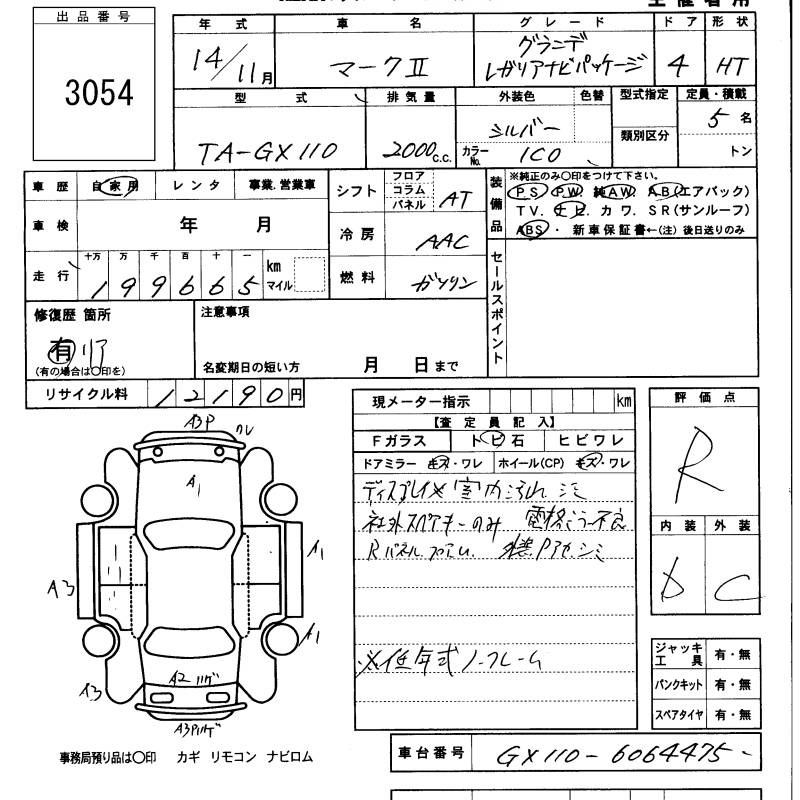 主催者用
出品番号
3054
年式 車名 グレード ドア 形状
14/11月 マークⅡ グランデ
レガリアナビパッケージ 4 HT
型式 排気量 外装色 色替 型式指定 定員・積載
TA-GX110 2000c.c. シルバー 5名
カラーNo. 1C0 類別区分 トン
車歴 自家用 レンタ 事業.営業車
シフト フロア コラム パネル AT
装備品 ※純正のみ〇印をつけて下さい。
PS PW 純AW. AB(エアバック)
TV. ナビ. カワ. SR(サンルーフ)
ABS ・ 新車保証書←(注) 後日送りのみ
車検 年 月
冷房 AAC
走行 十万 万 千 百 十 一
199665 km マイル
燃料 ガソリン
セールスポイント
修復歴 箇所
有 リア
(有の場合は〇印を)
注意事項
名変期日の短い方 月 日まで
リサイクル料 12190円
現メーター指示 km
【査定員記入】
Fガラス トビ石 ヒビワレ
ドアミラー キズ・ワレ ホイール(CP) キズ・ワレ
ディスプレイ× 室内汚れ シミ
社外スペアキーのみ 電格ミラー不良
Rパネル
※低年式ノークレーム
評価点
R
内装 外装
D C
ジャッキ 工具 有・無
パンクキット 有・無
スペアタイヤ 有・無
A3P
クレ
A1
A3
A1
A1
A3
A2 ハゲ
A3Pハゲ
事務局預り品は〇印 カギ リモコン ナビロム
車台番号 GX110-6064475-